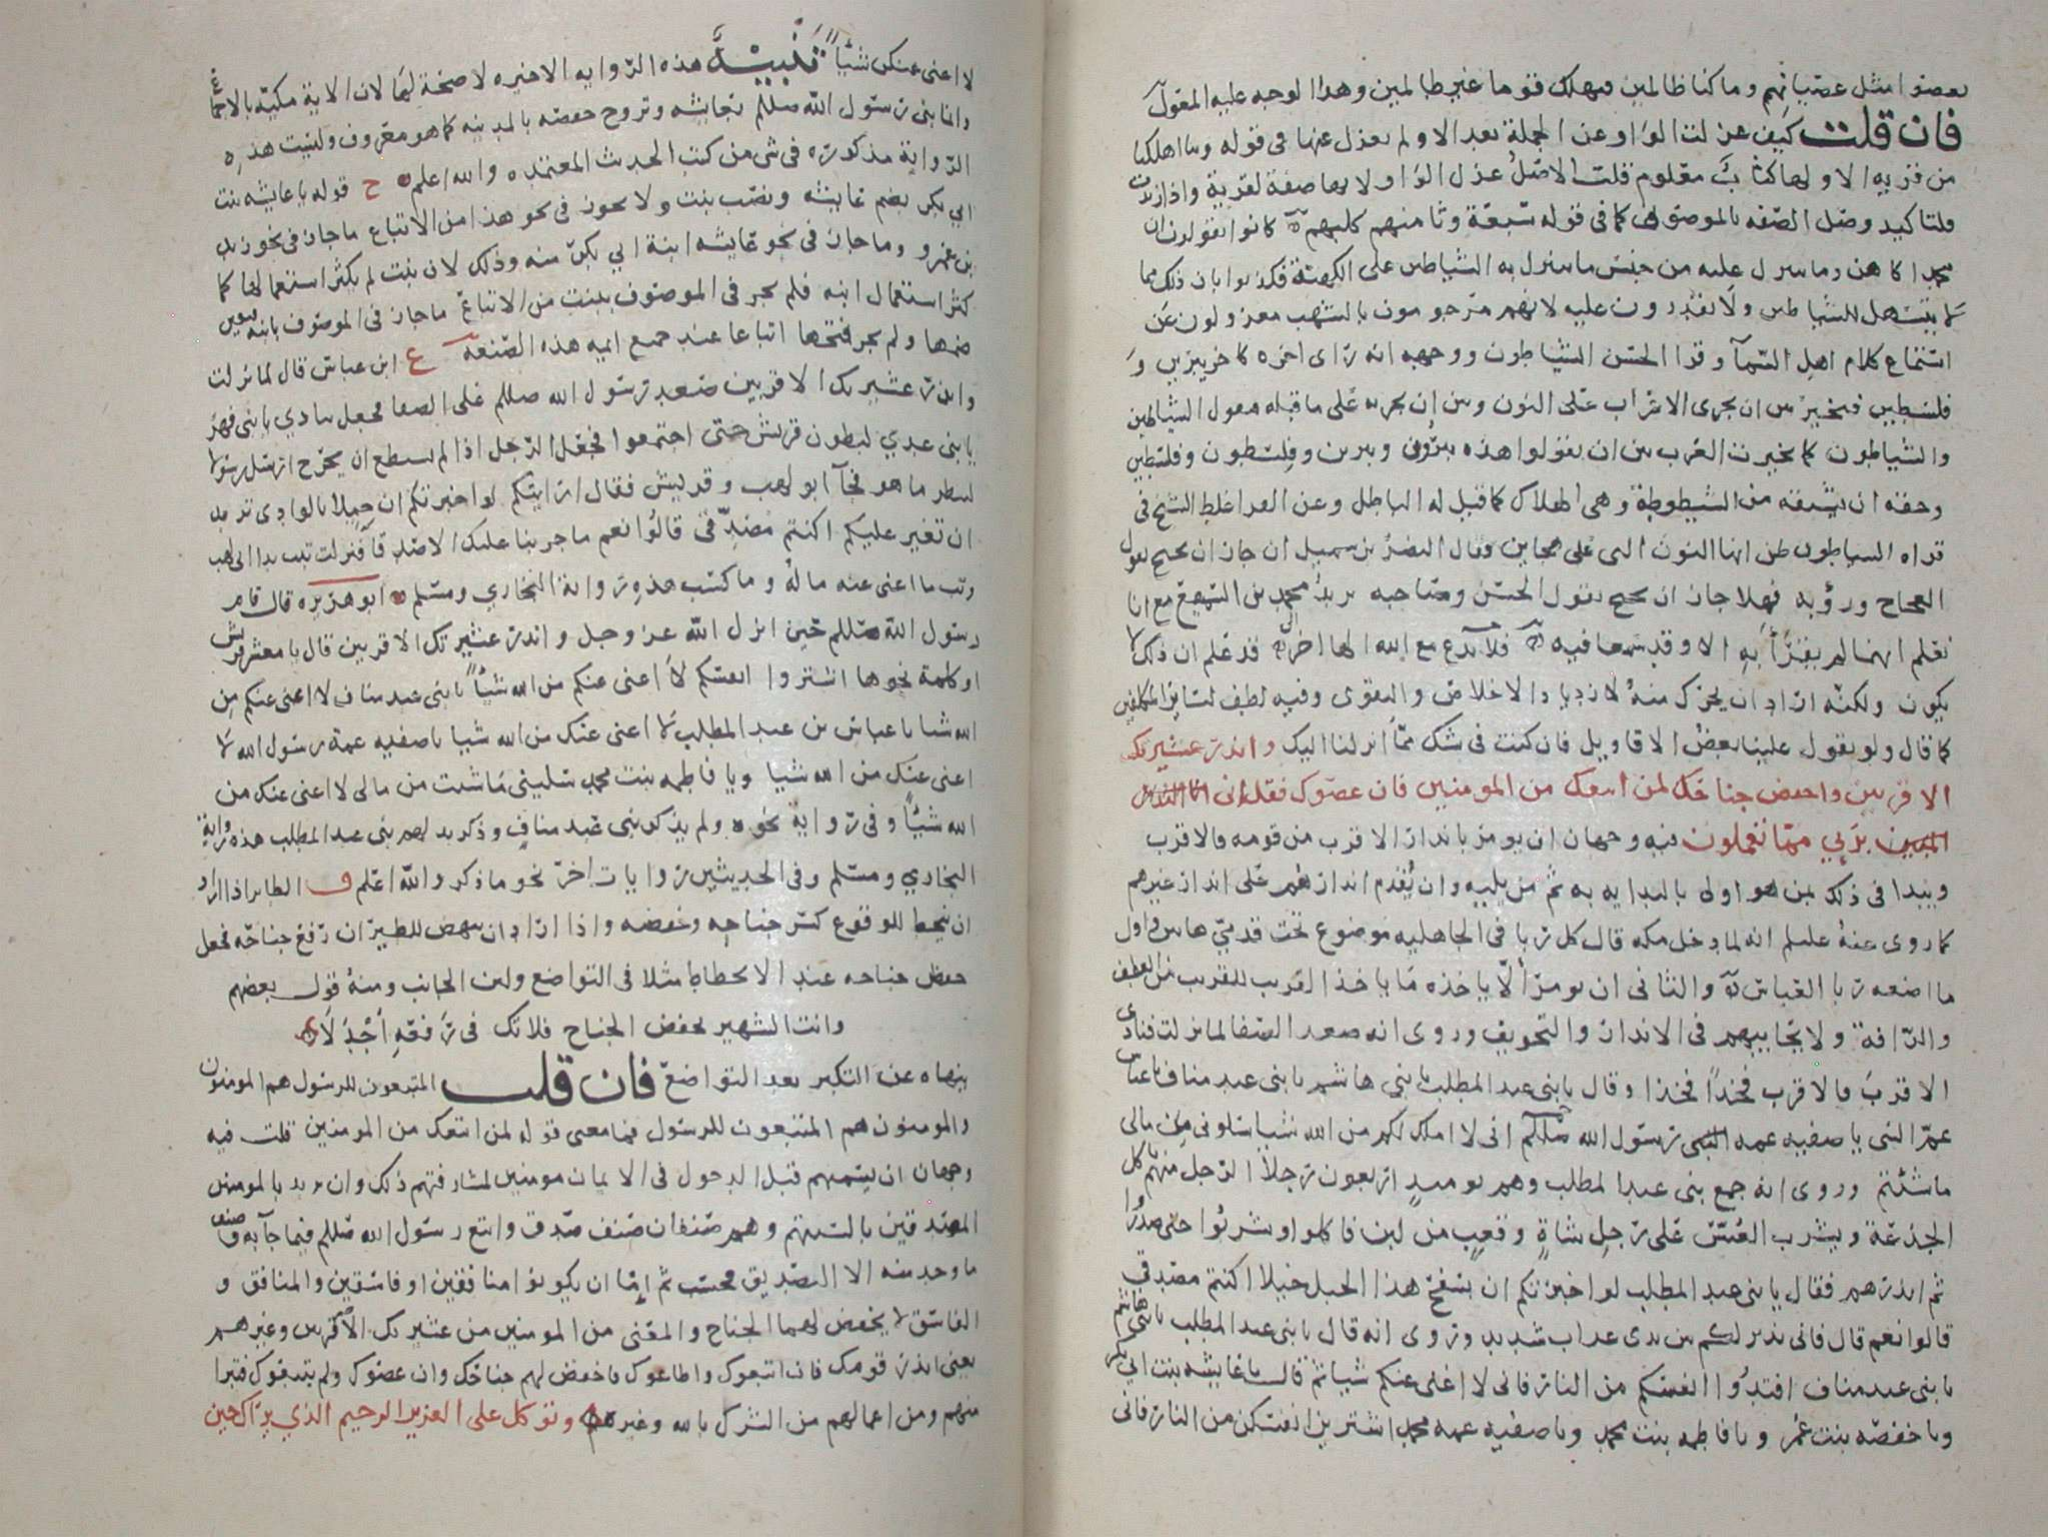 بعصوا مثل عصيانهم وما كنا ظالمين فنهلك قوما غير ظالمين وهذا الوجه عليه المعول
فان قلت كيف عزلت الواو عن الجملة بعد الا ولم يعزل عنها في قوله وما اهلكنا
من قرية الا ولها كتاب معلوم قلت الاصل عزل الواو لانها صفة لقرية واذا زيدت
فلتاكيد وصل الصفه بالموصوف كما في قوله سبعة وثامنهم كلبهم كانوا يقولون ان
محمدا كاهن وما ينزل عليه من جنس ما ينزل به الشياطين على الكهنة فكذبوا بان ذلك مما
لا يتسهل للشياطين ولا يقدرون عليه لانهم مرجومون بالشهب معزولون عن
استماع كلام اهل السمآ وقرا الحسن الشياطون ووجهه انه راى اخره كاخر يبرين و
فلسطين فتخير بين ان يجرى الاعراب على النون وبين ان يجريه على ما قبله فيقول الشياطين
والشياطون كما تخيرت العرب بين ان يقولوا هذه يبرون ويبرين وفلسطون وفلسطين
وحقه ان يشتقه من الشيطوطة وهي الهلاك كما قيل له الباطل وعن الفرا غلط الشيخ في
قراه الشياطون ظن انها النون التى على هجاين وقال النضر بن شميل ان جاز ان يحتج بقول
العجاج ورؤبه فهلا جاز ان يحتج بقول الحسن وصاحبه يريد محمد بن السميفع مع انا
نعلم انهما لم يقرأ به الا وقد سمعا فيه فلا تدع مع الله الها اخر قد علم ان ذلك لا
يكون ولكنه اراد ان يحرك منه لازدياد الاخلاص والتقوى وفيه لطف لسائر المكلفين
كما قال ولو تقول علينا بعض الاقاويل فان كنت في شك مما انزلنا اليك وانذر عشيرتك
الاقربين واخفض جناحك لمن اتبعك من المومنين فان عصوك فقل انى
بري مما تعملون فيه وجهان ان يومر بانذار الاقرب من قومه فالاقرب
ويبدا في ذلك بمن هو اولى بالبدايه به ثم من يليه وان يقدم انذارهم على انذار غيرهم
كما روى عنه عليلم انه لما دخل مكه قال كل ربا في الجاهليه موضوع تحت قدمي هاتين واول
ما اضعه ربا العباس والثاني ان يومر الا ياخذه ما ياخذ القريب للقريب من العطف
والرافة ولا يحابيهم في الانذار والتخويف وروى انه صعد الصفا لما نزلت فنادى
الاقرب فالاقرب فخذا فخذا وقال يا بنى عبد المطلب يا بنى هاشم يا بنى عبد مناف يا عباس
عم النبى يا صفيه عمه رسول الله صللم انى لا املك لكم من الله شيا سلونى من مالى
ما شئتم وروى انه جمع بنى عبد المطلب وهم يوميذ اربعون رجلا الرجل منهم ياكل
الجذعة ويشرب العس على رجل شاة وقعب من لبن فاكلوا وشربوا حتى صدروا
ثم انذرهم فقال يا بنى عبد المطلب لو اخبرتكم ان بسفح هذا الجبل خيلا اكنتم مصدقى
قالوا نعم قال فانى نذير لكم بين يدى عذاب شديد وروى انه قال يا بنى عبد المطلب يا بنى هاشم
يا بنى عبد مناف افتدوا انفسكم من النار فانى لا اغنى عنكم شيا ثم قال يا عايشه بنت ابى بكر
ويا حفصه بنت عمر ويا فاطمه بنت محمد ويا صفيه عمه محمد اشترين انفسكن من النار فانى
لا اغنى عنكن شيأ تنبيه هذه الروايه الاخيره لا صحة لها لان الاية مكيه بالاجماع
وانما بنى رسول الله صللم بعايشه وتزوج حفصه بالمدينه كما هو معروف وليست هذه
الرواية مذكوره في شى من كتب الحديث المعتمده والله اعلم ح قوله يا عايشه بنت
ابي بكر بضم عايشه ونصب بنت ولا يجوز في نحو هذا من الاتباع ما جاز في نحو زيد
بن عمرو وما جاز في نحو عايشه ابنة ابي بكر منه وذلك لان بنت لم يكثر استعمالها كما
كثر استعمال ابنه فلم يجر في الموصوف ببنت من الاتباع ما جاز في الموصوف بابنه فيعين
ضمها ولم يجر فتحها اتباعا عند جميع ايمه هذه الصنعة ع ابن عباس قال لما نزلت
وانذر عشيرتك الاقربين صعد رسول الله صللم على الصفا فجعل ينادي يا بنى فهر
يا بنى عدي لبطون قريش حتى اجتمعوا فجعل الرجل اذا لم يسطع ان يخرج ارسل رسولا
لينظر ما هو فجآ ابو لهب وقريش فقال ارايتكم لو اخبرتكم ان خيلا بالوادى تريد
ان تغير عليكم اكنتم مصدقى قالوا نعم ما جربنا عليك الا صدقا فنزلت تبت يدا ابى لهب
وتب ما اغنى عنه ماله وما كسب هذه رواية البخاري ومسلم ابو هريره قال قام
رسول الله صللم حين انزل الله عز وجل وانذر عشيرتك الاقربين قال يا معشر قريش
او كلمة نحوها اشتروا انفسكم لا اغنى عنكم من الله شيأ يا بنى عبد مناف لا اغنى عنكم من
الله شيا يا عباس بن عبد المطلب لا اغنى عنك من الله شيا يا صفيه عمة رسول الله لا
اغنى عنك من الله شيا ويا فاطمه بنت محمد سلينى ما شئت من مالى لا اغنى عنك من
الله شيأ وفى رواية نحوه ولم يذكر بنى عبد مناف وذكر بدلهم بنى عبد المطلب هذه رواية
البخاري ومسلم وفى الحديثين روايات اخر نحو ما ذكر والله اعلم ف الطاير اذا اراد
ان ينحط للوقوع كسر جناحه وخفضه واذا اراد ان ينهض للطيران رفع جناحه فجعل
خفض جناحه عند الانحطاط مثلا في التواضع ولين الجانب ومنه قول بعضهم
وانت الشهير بخفض الجناح فلا تك في رفعه أجدلا
ينهاه عن التكبر بعد التواضع فان قلت المتبعون للرسول هم المومنون
والمومنون هم المتبعون للرسول فما معنى قوله لمن اتبعك من المومنين قلت فيه
وجهان ان يسميهم قبل الدخول في الايمان مومنين لمشارفتهم ذلك وان يريد بالمومنين
المصدقين بالسنتهم وهم صنفان صنف صدق واتبع رسول الله صللم فيما جآ به وصنف
ما وجد منه الا التصديق فحسب ثم اما ان يكونوا منافقين او فاسقين والمنافق و
الفاسق لا يخفض لهما الجناح والمعنى من المومنين من عشيرتك الاقربين وغيرهم
يعنى انذر قومك فان اتبعوك واطاعوك فاخفض لهم جناحك وان عصوك ولم يتبعوك فتبرا
منهم ومن اعمالهم من الشرك بالله وغيره وتوكل على العزيز الرحيم الذي يراك حين